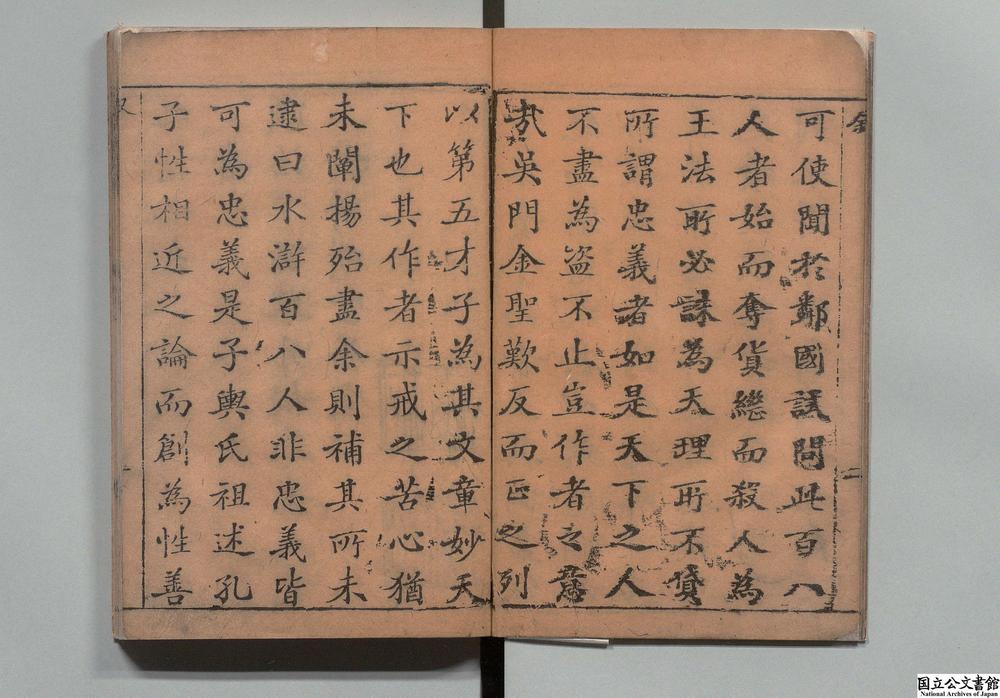 可使聞於鄰國試問此百八
人者始而奪貨繼而殺人為
王法所必誅為天理所不貸
所謂忠義者如是天下之人
不盡為盜不止豈作者之意
哉吳門金聖歎反而正之列
以第五才子為其文章妙天
下也其作者示戒之苦心猶
未闡揚殆盡余則補其所未
逮曰水滸百八人非忠義皆
可為忠義是子輿氏祖述孔
子性相近之論而創為性善
国立公文書館
National Archives of Japan